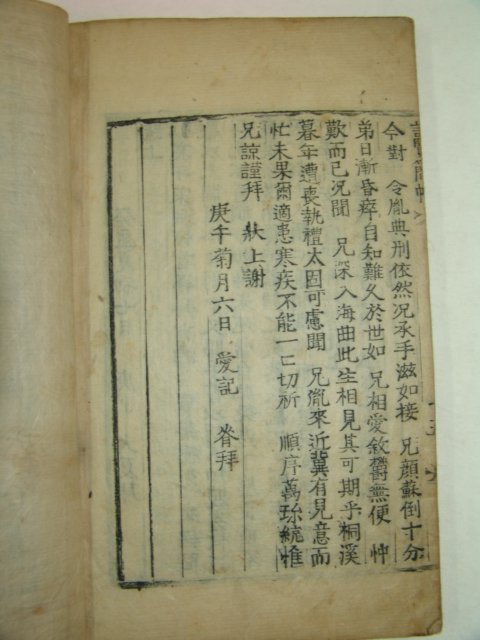 諸賢簡帖
今對 令胤典刑依然况承手滋如接 兄顔蘇倒十分
弟日漸昏瘁自知難久於世如 兄相愛敘欝無便 忡
歎而已况聞 兄深入海曲此生相見其可期乎桐溪
暮年遭喪執禮太固可慮聞 兄胤來近冀有見意而
忙未果爾適患寒疾不能一一切祈 順序萬珎統惟
兄諒謹拜 狀上謝
庚午菊月六日 愛記 眷拜